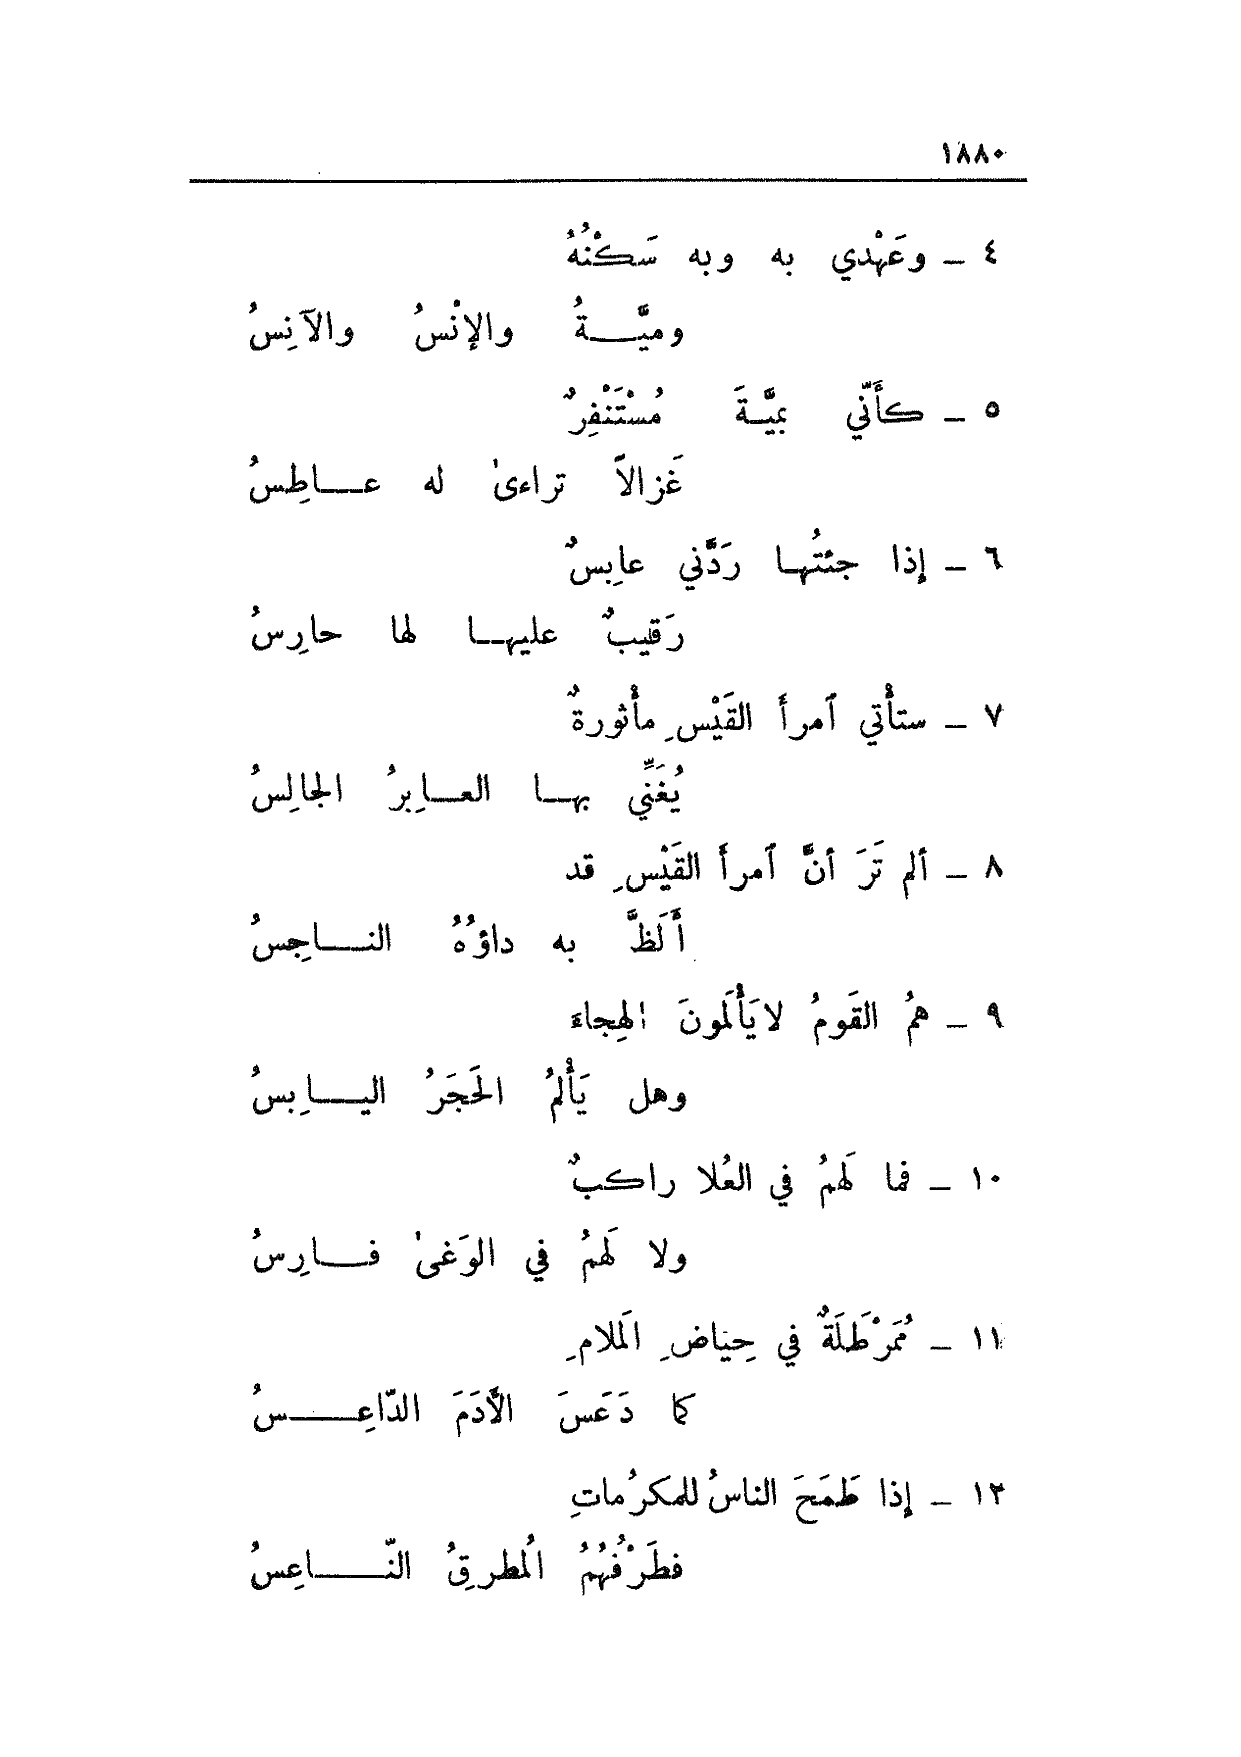 ١٨٨٠
٤ ـ وعَهْدي به وبه سَكْنُهُ
وميَّـــةُ والإنْسُ والآنِسُ
٥ ـ كأَنّي بميَّـةَ مُسْتَنْفِرٌ
غَزالاً تراءىٰ له عـــاطِسُ
٦ ـ إِذا جئتُهـا رَدَّني عابِسٌ
رَقيبٌ عليهـا لها حارِسُ
٧ ـ ستأْتي ٱمرأَ القَيْسِ مأْثورةٌ
يُغَنِّي بهـا العـابِرُ الجالِسُ
٨ ـ ألم تَرَ أنَّ ٱمرأَ القَيْسِ قد
أَلَظَّ به داؤُهُ النـــاجِسُ
٩ ـ همُ القَومُ لايَأْلَمونَ الهِجاءَ
وهل يَأْلمُ الحَجَرُ اليـــابِسُ
١٠ ـ فما لَهمُ في العُلا راكبٌ
ولا لَهمُ في الوَغىٰ فـــارِسُ
١١ ـ مُمَرْطَلَةٌ في حِياضِ المَلامِ
كما دَعَسَ الأَدَمَ الدّاعِـــسُ
١٢ ـ إِذا طَمَحَ الناسُ للمكرُماتِ
فطَرْفُهُمُ المُطرِقُ النّـــاعِسُ